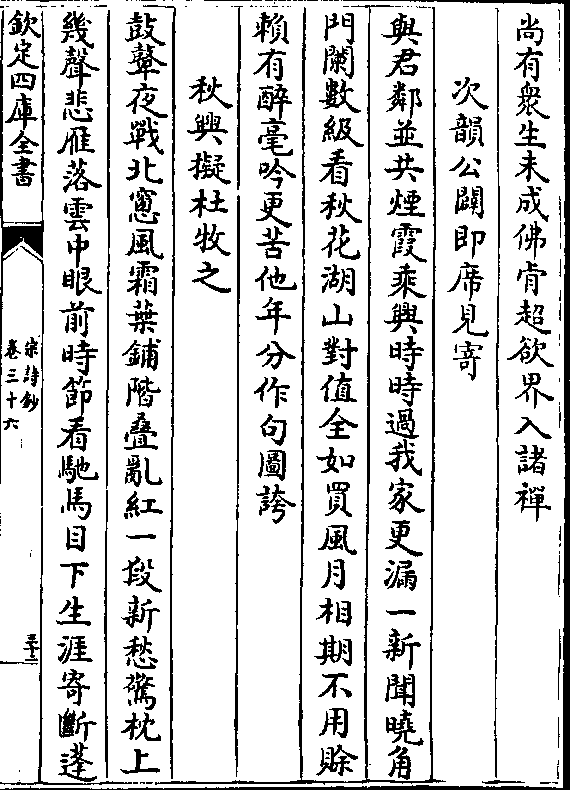 尚有衆生未成佛肯超欲界入諸禪
次韻公闢即席見寄
與君鄰並共煙霞乘興時時過我家更漏一新聞曉角
門闌數級看秋花湖山對值全如買風月相期不用賒
賴有醉毫吟更苦他年分作句圖誇
秋興擬杜牧之
鼓鼙夜戰北窻風霜葉鋪階疊亂紅一段新愁驚枕上
幾聲悲雁落雲中眼前時節看馳馬目下生涯寄斷蓬
欽定四庫全書
宋詩鈔
卷三十六